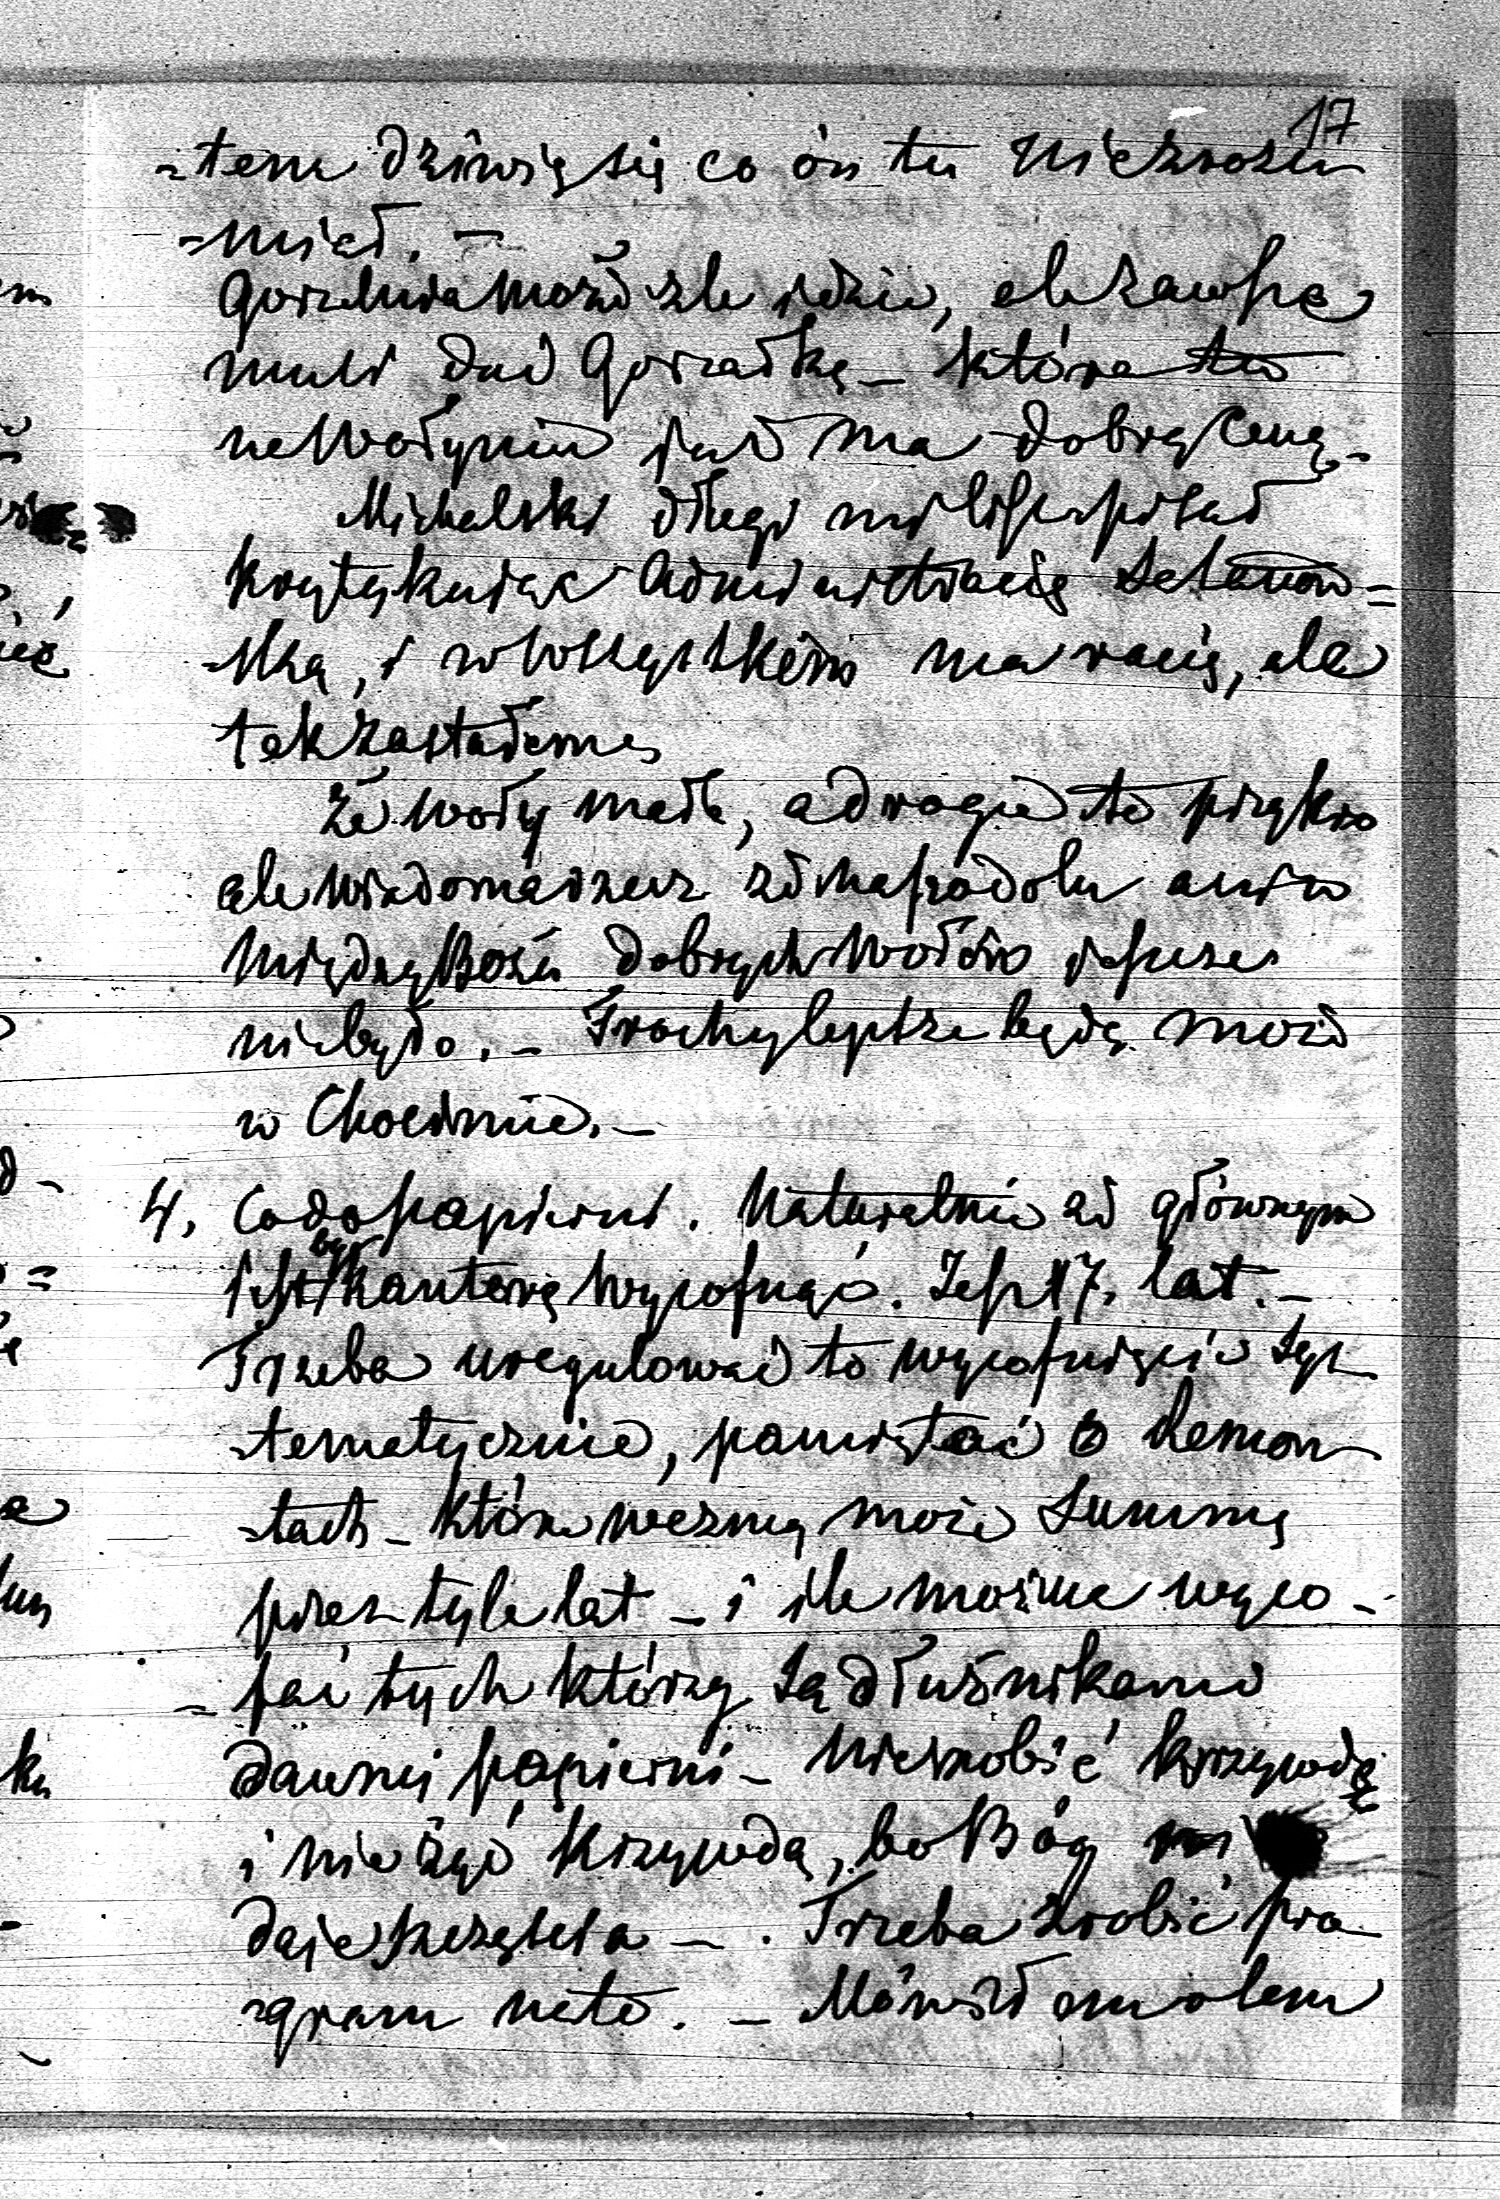 17
-tem dziwię się co ón tu niezrozu
-miał. -
Gorzelnia może źle idzie, ale zawsze
musi dać Gorzałkę - która
na Wołyniu jest ma dobrą Cenę -
Michalski długi mi list pisał
krytykując Administracię Setanow=
-ską, i w wszystkim ma racię, ale
tak zastaliśmy
że woły małe, a drogie to przykro
ale wiadoma rzecz że na podolu ani w
Międzybożu dobrych wołów jeszcze
niebyło. - Trochę lepsze będą może
w Choci
4, Co do papierni. Naturalnie że głównym
jest być kautorą wycofnąć. Jest 17, lat. -
Trzeba uregulować to wycofnięcie Sys
-tematycznie, pamiętać o Remon
-tach - które wezmą może Summę
przez tyle lat - i ile można wyco -
- fać tych którzy są dłużnikami
dawnej papierni - niezrobić krzywdę
i nie żyć krzywdą, bo Bóg ni
daje szczęścia - . Trzeba zrobić pro
-gram na to. - Mówił